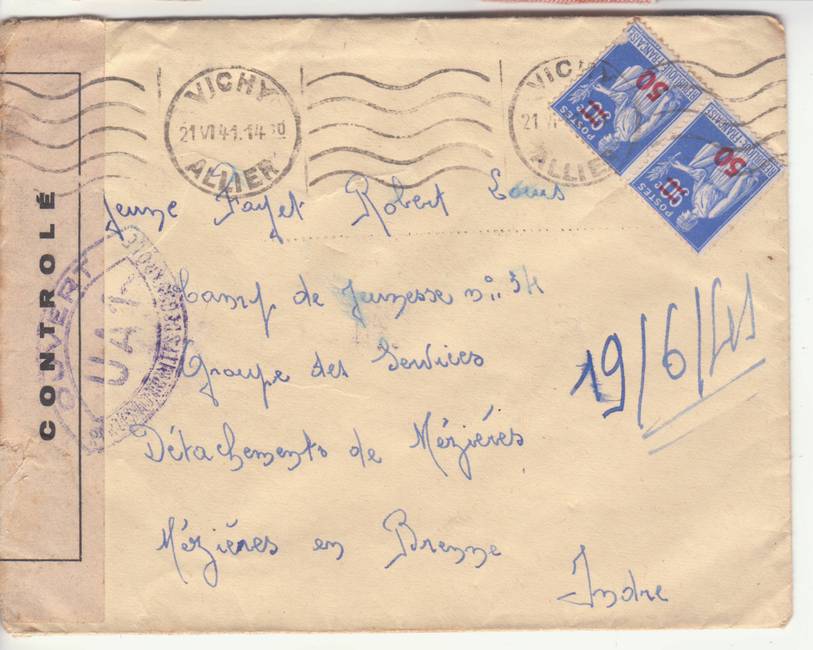 VICHY
21 VI 41.14
ALLIER
VICHY
21 VI
ALLIER
50
POSTES
50
POSTES
Jeune Fayet Robert Louis
Camp de Jeunesse n° 34
Groupe des Services
Détachements de Mézières
Mézières en Brenne
Indre
19/6/41
CONTROLÉ
OUVERT
UA1